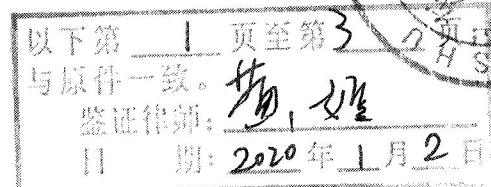 以下第 1 页至第 3 页
与原件一致。
鉴证律师：黄
日 期：2020 年 1 月 2 日